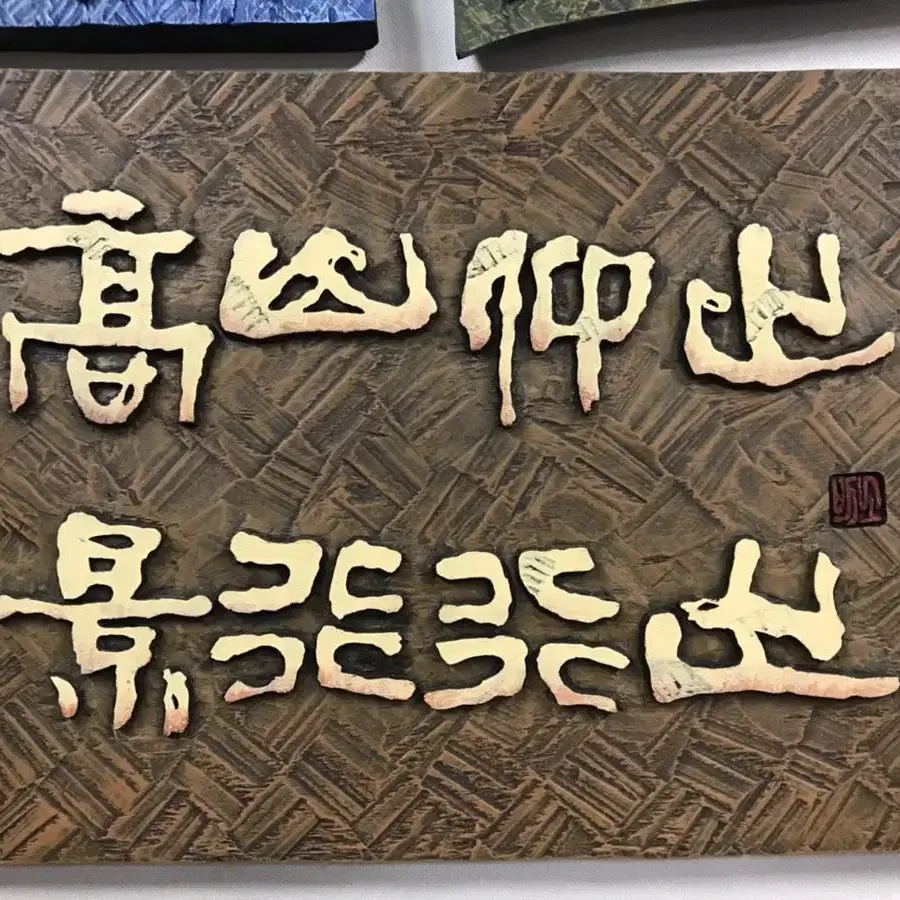 高山仰止
景行行止